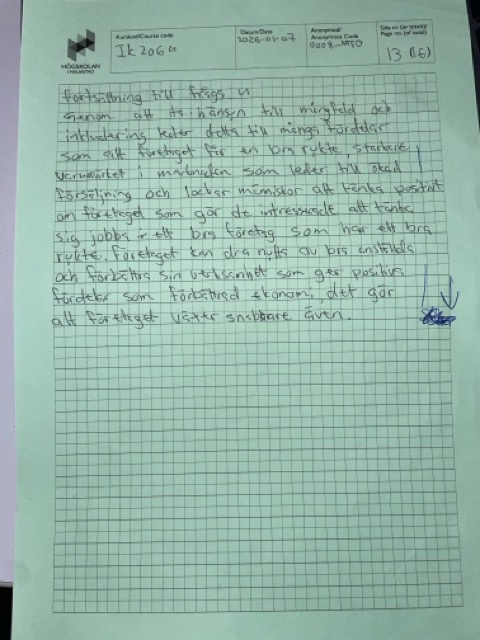 HÖGSKOLAN
I HALMSTAD
Kurskod/Course code
IK206U
Datum/Date
2026-01-07
Anonymkod/
Anonymous Code
0008-MTO
Sida nr (av totalt)/
Page no. (of total)
13 (16)
fortsättning till fråga 4
Genom att ta hänsen till mångfald och
inkludering leder detta till många fördelar
som att företaget får en bra rykte, starkare
varumärket i marknaden som leder till ökad
försäljning och lockar människor att tänka positivt
om företaget som gör de intresserade att tänka
sig jobba i ett bra företag som har ett bra
rykte. Företaget kan dra nytta av bra anställda
och förbättra sin verksamhet som ger positiva
fördelar som förbättrad ekonomi, det gör
att företaget växer snabbare även.